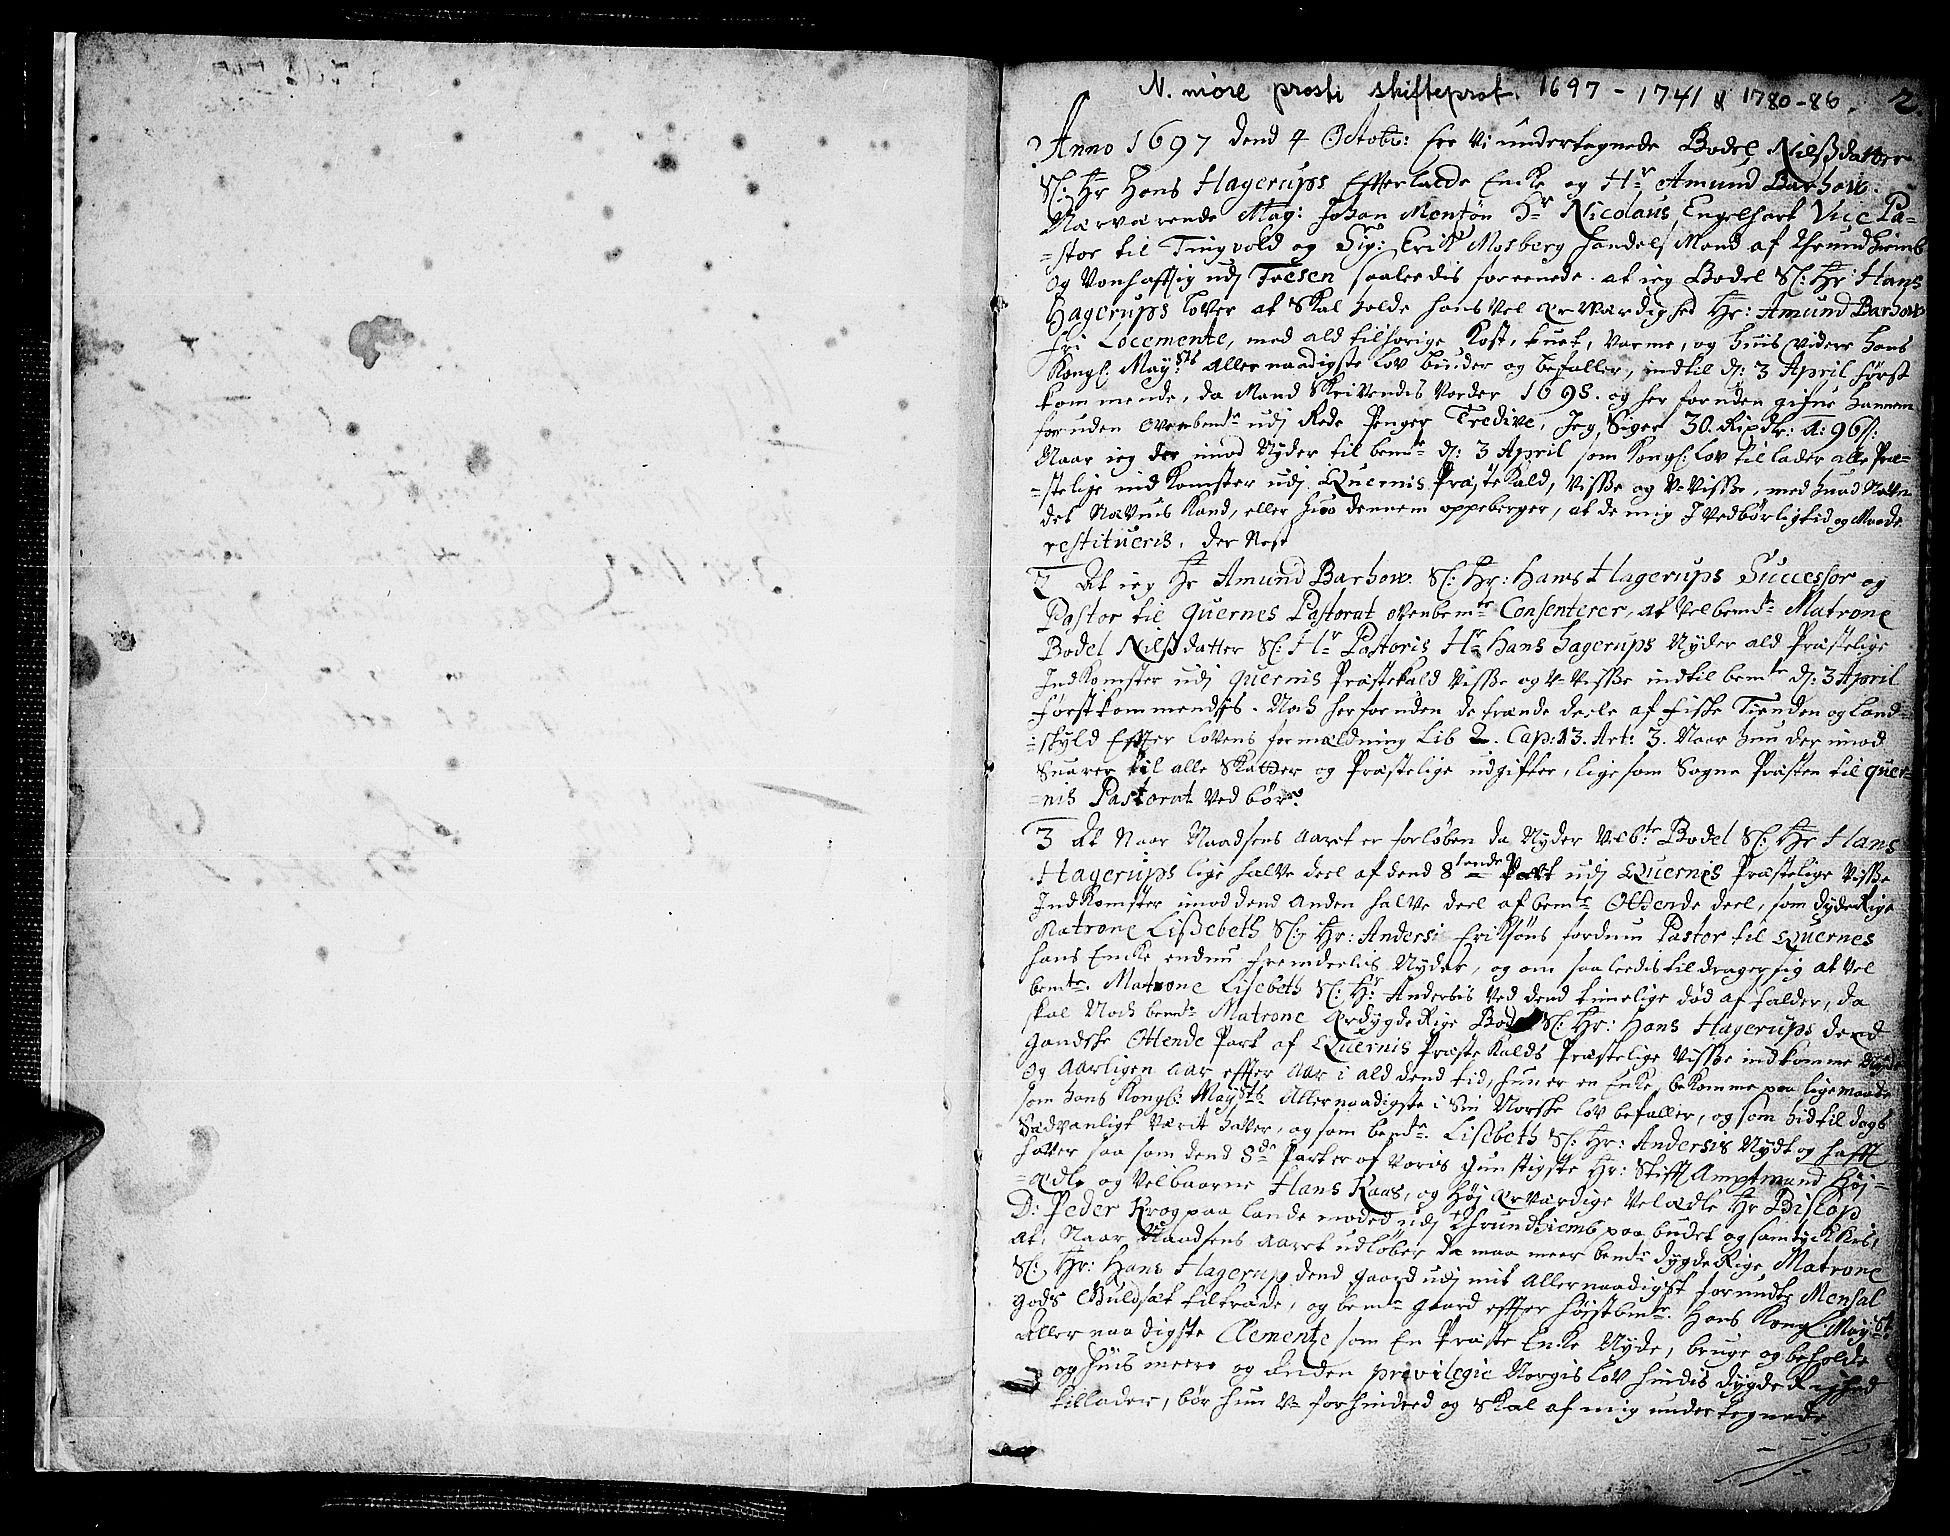 N. möre prosti skifteprot. 1697 - 1741 & 1780-86. 2
Anno 1697 dend 4 Octobr: ere Vi undertegnede Bodel Nilsdatter
Sl: Hr Hans Hagerups Effterlatde Encke og Hr Amund Barhow.
Nærværende Mag: Johan Mentzon Hr Nicolaus Engelhart Vice Pa=
=stor til Tingvold og Sig: Erick Mosberg Handels Mand af Thrundhiemb
og Vonhafftig udj Foesen saaledis foreenede. at ieg Bodel Sl: Hr: Hans
Hagerups lover at Skal holde hans Vel ærværdighed Hr: Amund Barhow
fri Locemente, med ald tilhørige Kost, tuet, Varme, og huis videre hans
Kongl: Maysts Aller naadigste lov binder og befaller, indtil d: 3 April først
kommende, da Mand Skrivendis Vorder 1698. og her foruden gifue hannem
foruden ovenbemte udj Rede Penger Tredive, Jeg Siger 30. Rixdlr: a: 96 s:
Naar ieg der imod Nyder til bemte d: 3 April som Kongl: Lov til lader alle Præ=
=stelige indkomster udj Quernis Præste Kald, Visse og U-Visse, med huad Navn
det Nævnis Kand, eller huo dennem oppeberger, at de mig J Vedbørlig tid og Maade
restitueris. Der Nest
2 At ieg Hr Amund Barhow. Sl: Hr: Hans Hagerups Successor og
Pastor til Quernes Pastorat ovenbemte Consenterer, at Velbemte Matrone
Bodel Nilsdatter Sl: Hr Pastoris Hr Hans Hagerups Nyder ald Præstelige
Indkomster udj Quernis Præstekald Visse og U-Visse indtil bemte d: 3 April
førstkommendis. Noch her foruden de trænde deele af fiske Tienden og Land=
=skyld Effter Lovens formældning Lib 2. Cap: 13. Art: 3. Naar hun der imod
Suarer til alle Skatter og Præstelige udgifter, lige som Sogne Præsten til Quer=
=nis Pastorat Ved bør.
3 At Naar Naadsens Aaret er forløben da Nyder Velbte Bodel Sl: Hr Hans
Hagerups lige halve deel af dend 8tende Part udj Quernes Præstelige Visse
Indkomster imod dend anden halve deel af bemte Ottende deel, som dydeRige
Matrone Lissebeth Sl: Hr: Andersis Eriksøns fordum Pastor til Quernes
hans Encke endnu fremdeelis Nyder, og om saaleedis tildrager sig at Vel
bemte. Matrone Lisebeth Sl: Hr: Andersis Ved dend timelige død af falder, da
skal Noch bemte Matrone ærdygdeRige Bodel Sl: Hr: Hans Hagerups dend
gandske Ottende Part af Quernis Præste Kalds Præstelige Visse indkomme Nyde
og Aarligen Aar effter Aar i ald dend tid, hun er en Encke, bekomme paa lige maade
som hans Kongl: Maysts Aller naadigste i Sin Norske lov befaller, og som hid til dags
Sædvanligt Værit haver, og som bemte. Lisebeth Sl: Hr: Andersis Nydt og hafft
haver saa som dend 8de Part er af Voris gunstigste Hr: Stifft Amptmand Høj=
=ædle og Velbaarne Hans Kaas, og Høj ærværdige Velædle Hr Biskop
D: Peder Krog paa lande moded udj Thrundhiemb paa budet og samtyckkis,
at. Naar Naadsens Aaret udløber da maa meer bemte dygdeRige Matrone
Sl: Hr: Hans Hagerup dend gaard udj mit Allernaadigst forundte Mensal
gods Guldsæt tiltræde, og bemte gaard effter højstbemte. Hans Kongl Maysts
Aller naadigste Clemente som En Præste Encke Nyde, bruge og beholde
og huis meere og anden previlegie Norgis Lov hindis dygdeRighed
tillader, bør hun U-forhindred og Skal af mig undertegnede